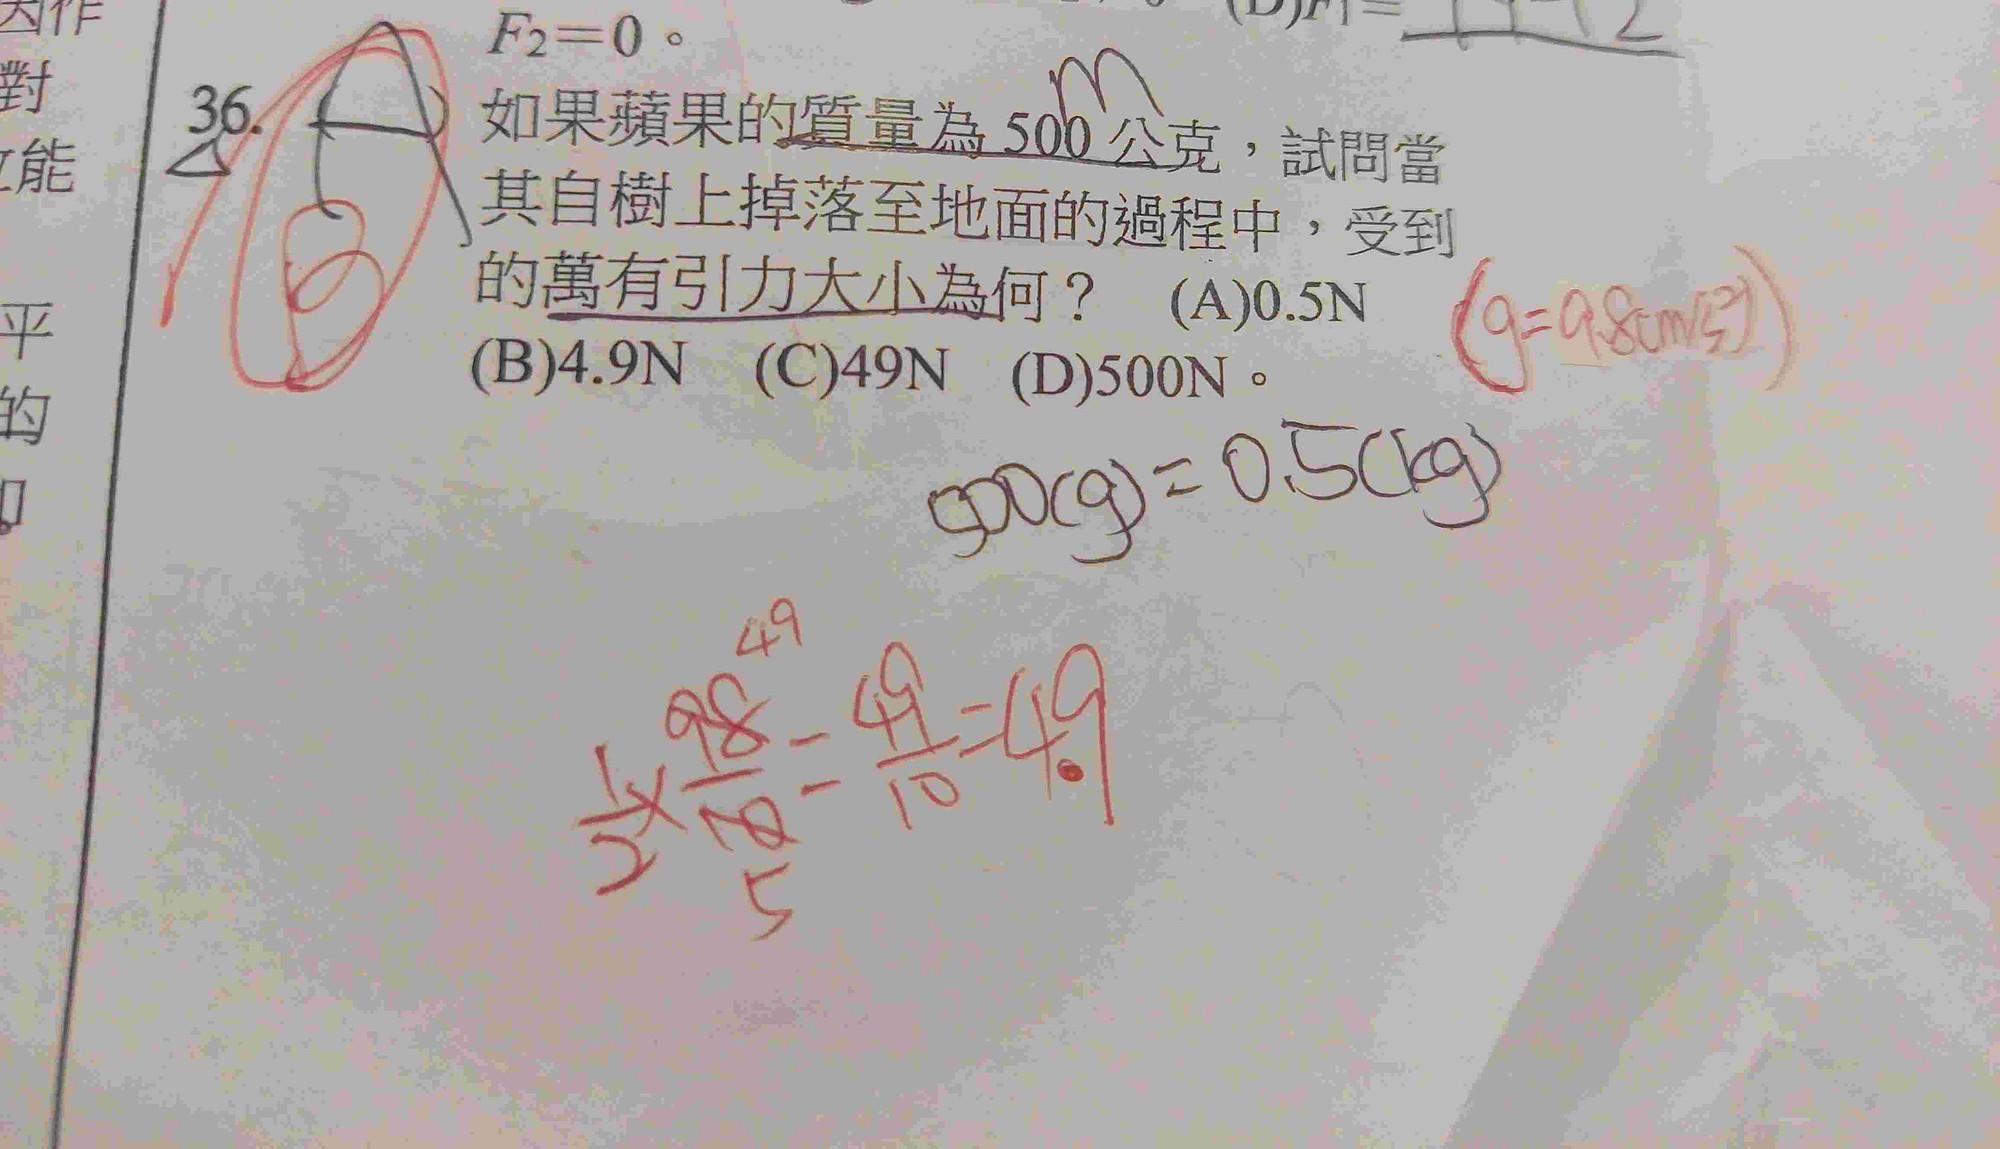 因作
對
能
平
的
F₂=0。
(D)F₁=
36.
A
B
m
如果蘋果的質量為 500 公克，試問當
其自樹上掉落至地面的過程中，受到
的萬有引力大小為何？ (A)0.5N
(B)4.9N (C)49N (D)500N。
(g=9.8(m/s²))
500(g)=0.5(kg)
49
1/2×98/10=49/10=4.9
5